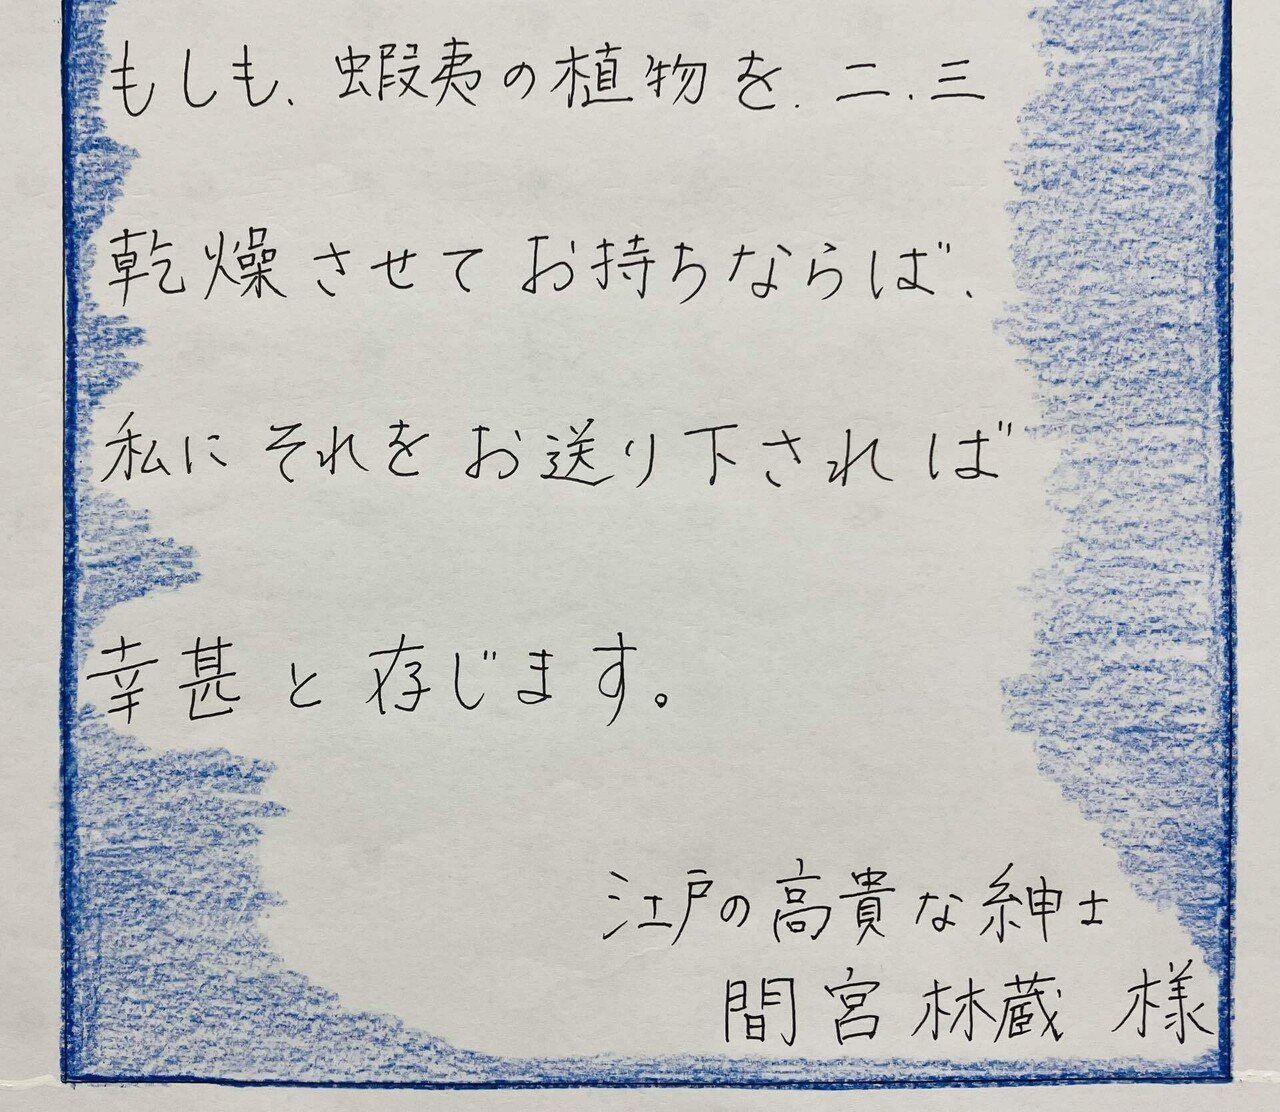 もしも、蝦夷の植物を、二、三
乾燥させてお持ちならば、
私にそれをお送り下されば
幸甚と存じます。
江戸の高貴な紳士
間宮林蔵 様